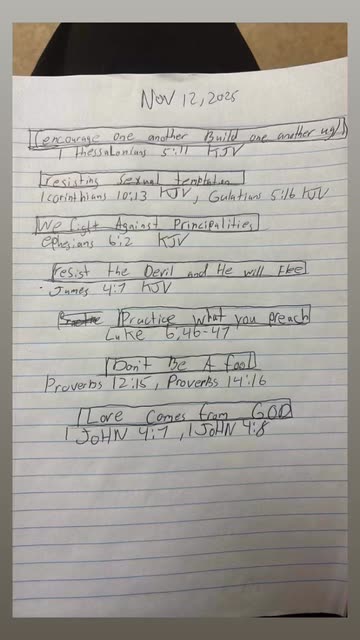 Nov 12, 2025
encourage one another Build one another up
1 Thessalonians 5:11 KJV
resisting sexual temptation
1 corinthians 10:13 KJV, Galatians 5:16 KJV
We fight Against Principalities
ephesians 6:2 KJV
resist the Devil and He will flee
James 4:7 KJV
Practice what you preach
Luke 6,46-47
Don't Be A fool
Proverbs 12:15, Proverbs 14:16
Love comes from GOD
1 JOHN 4:7, 1 JOHN 4:8